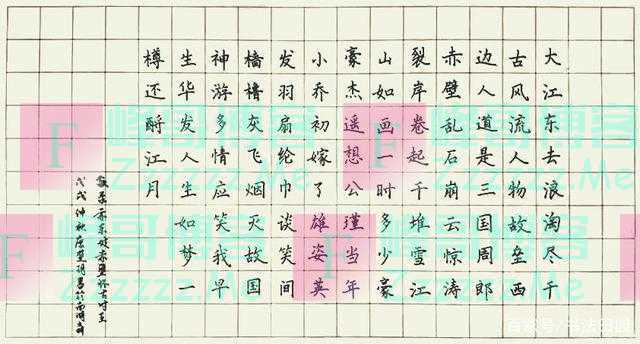 大江东去浪淘尽千
古风流人物故垒西
边人道是三国周郎
赤壁乱石崩云惊涛
裂岸卷起千堆雪江
山如画一时多少豪
豪杰遥想公瑾当年
小乔初嫁了雄姿英
发羽扇纶巾谈笑间
樯橹灰飞烟灭故国
神游多情应笑我早
生华发人生如梦一
樽还酹江月
苏东坡赤壁怀古
戊戌仲秋